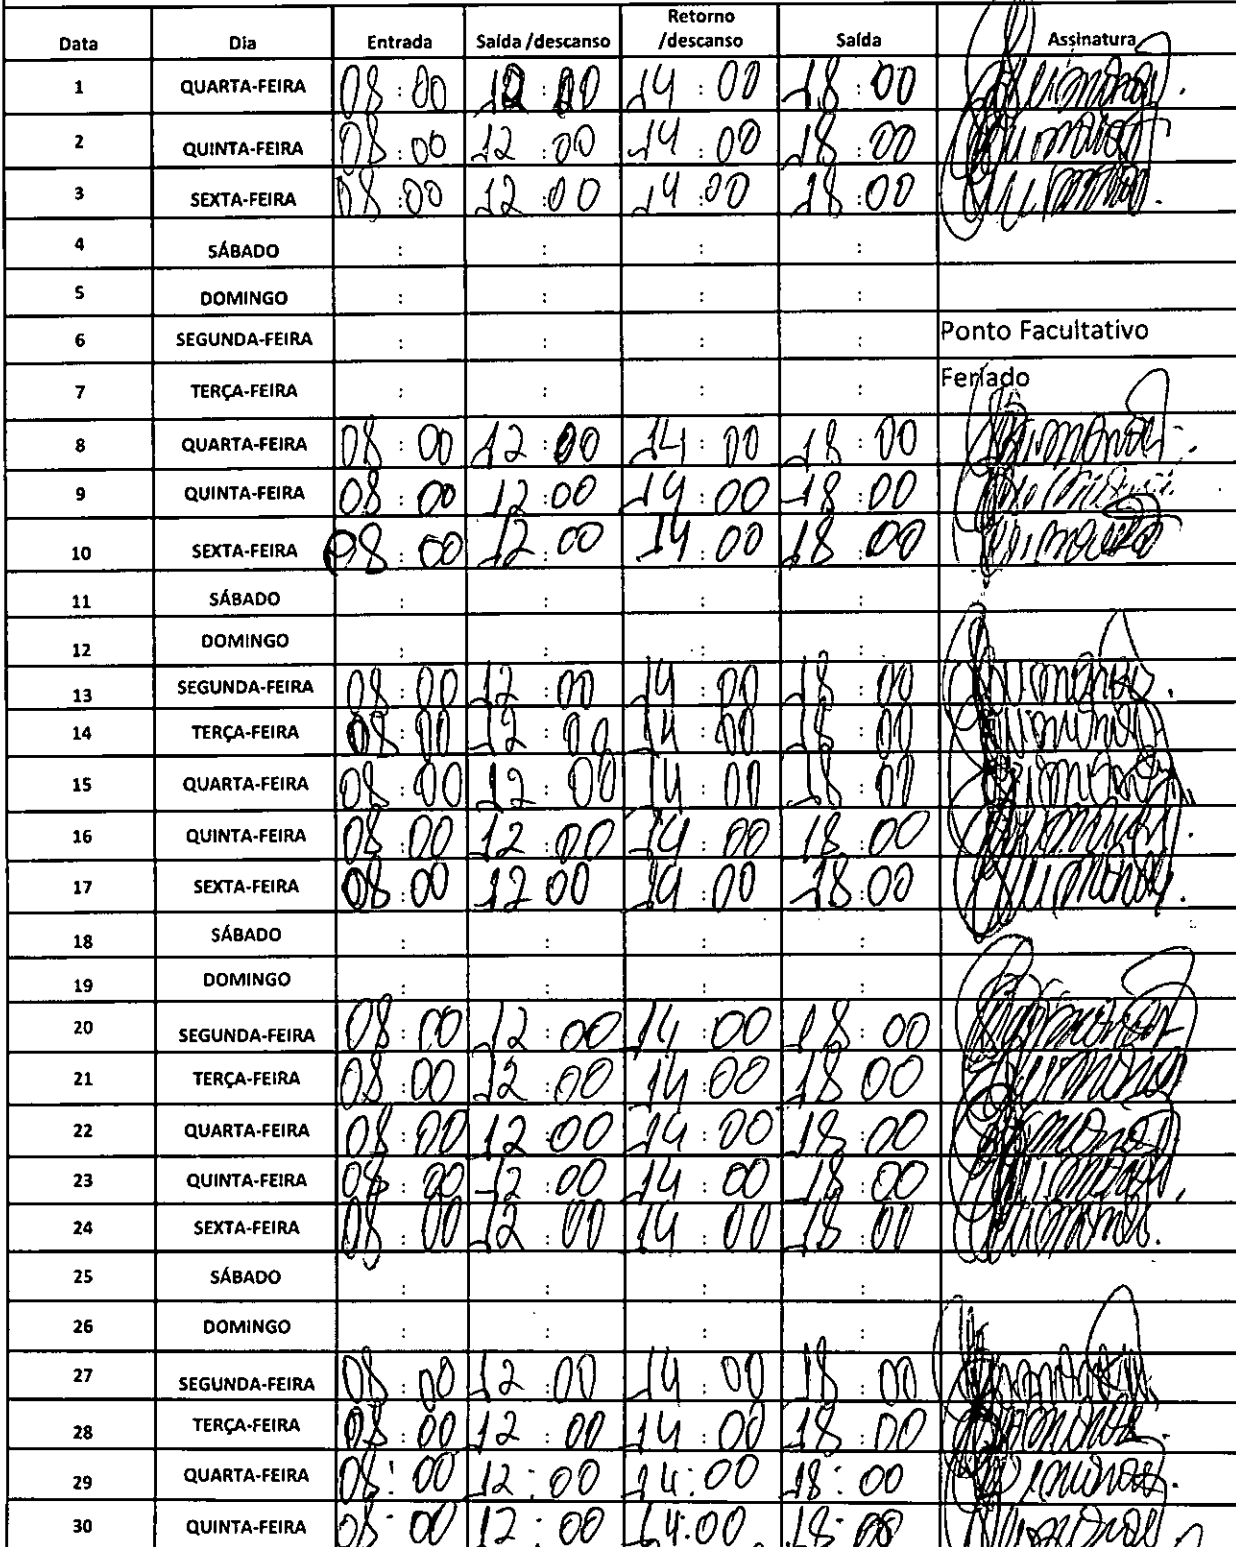 Data Dia Entrada Saída /descanso Retorno /descanso Saída Assinatura
1 QUARTA-FEIRA 08:00 12:00 14:00 18:00
2 QUINTA-FEIRA 08:00 12:00 14:00 18:00
3 SEXTA-FEIRA 08:00 12:00 14:00 18:00
4 SÁBADO : : : :
5 DOMINGO : : : :
6 SEGUNDA-FEIRA : : : : Ponto Facultativo
7 TERÇA-FEIRA : : : : Feriado
8 QUARTA-FEIRA 08:00 12:00 14:00 18:00
9 QUINTA-FEIRA 08:00 12:00 14:00 18:00
10 SEXTA-FEIRA 08:00 12:00 14:00 18:00
11 SÁBADO : : : :
12 DOMINGO : : : :
13 SEGUNDA-FEIRA 08:00 12:00 14:00 18:00
14 TERÇA-FEIRA 08:00 12:00 14:00 18:00
15 QUARTA-FEIRA 08:00 12:00 14:00 18:00
16 QUINTA-FEIRA 08:00 12:00 14:00 18:00
17 SEXTA-FEIRA 08:00 12:00 14:00 18:00
18 SÁBADO : : : :
19 DOMINGO : : : :
20 SEGUNDA-FEIRA 08:00 12:00 14:00 18:00
21 TERÇA-FEIRA 08:00 12:00 14:00 18:00
22 QUARTA-FEIRA 08:00 12:00 14:00 18:00
23 QUINTA-FEIRA 08:00 12:00 14:00 18:00
24 SEXTA-FEIRA 08:00 12:00 14:00 18:00
25 SÁBADO : : : :
26 DOMINGO : : : :
27 SEGUNDA-FEIRA 08:00 12:00 14:00 18:00
28 TERÇA-FEIRA 08:00 12:00 14:00 18:00
29 QUARTA-FEIRA 08:00 12:00 14:00 18:00
30 QUINTA-FEIRA 08:00 12:00 14:00 18:00